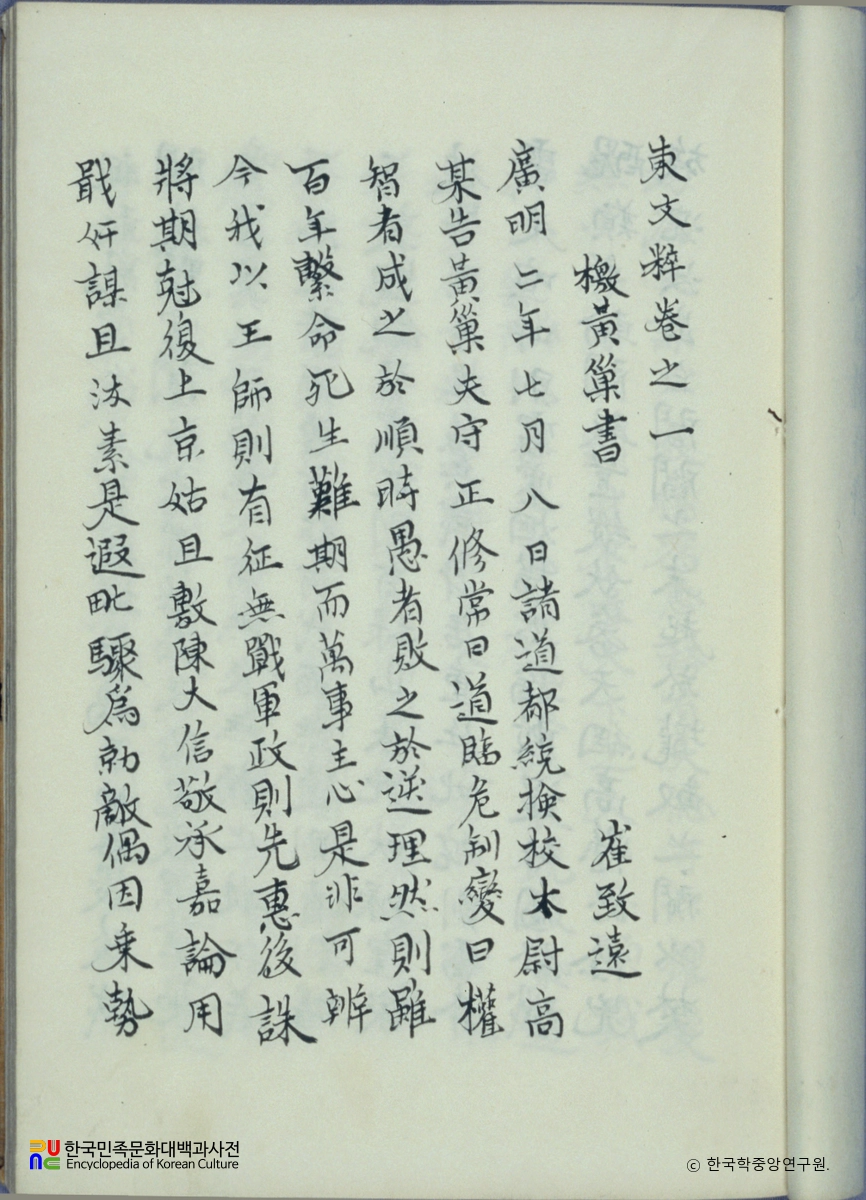 東文粹卷之一
檄黃巢書 崔致遠
廣明二年七月八日諸道都統檢校太尉高
某告黃巢夫守正修常曰道臨危制變曰權
智者成之於順時愚者敗之於逆理然則雖
百年繫命死生難期而萬事主心是非可辨
今我以王師則有征無戰軍政則先惠後誅
將期尅復上京姑且敷陳大信敬承嘉論用
戢奸謀且汝素是遐甿驟爲勍敵偶因乗勢
한국민족문화대백과사전
Encyclopedia of Korean Culture
© 한국학중앙연구원.